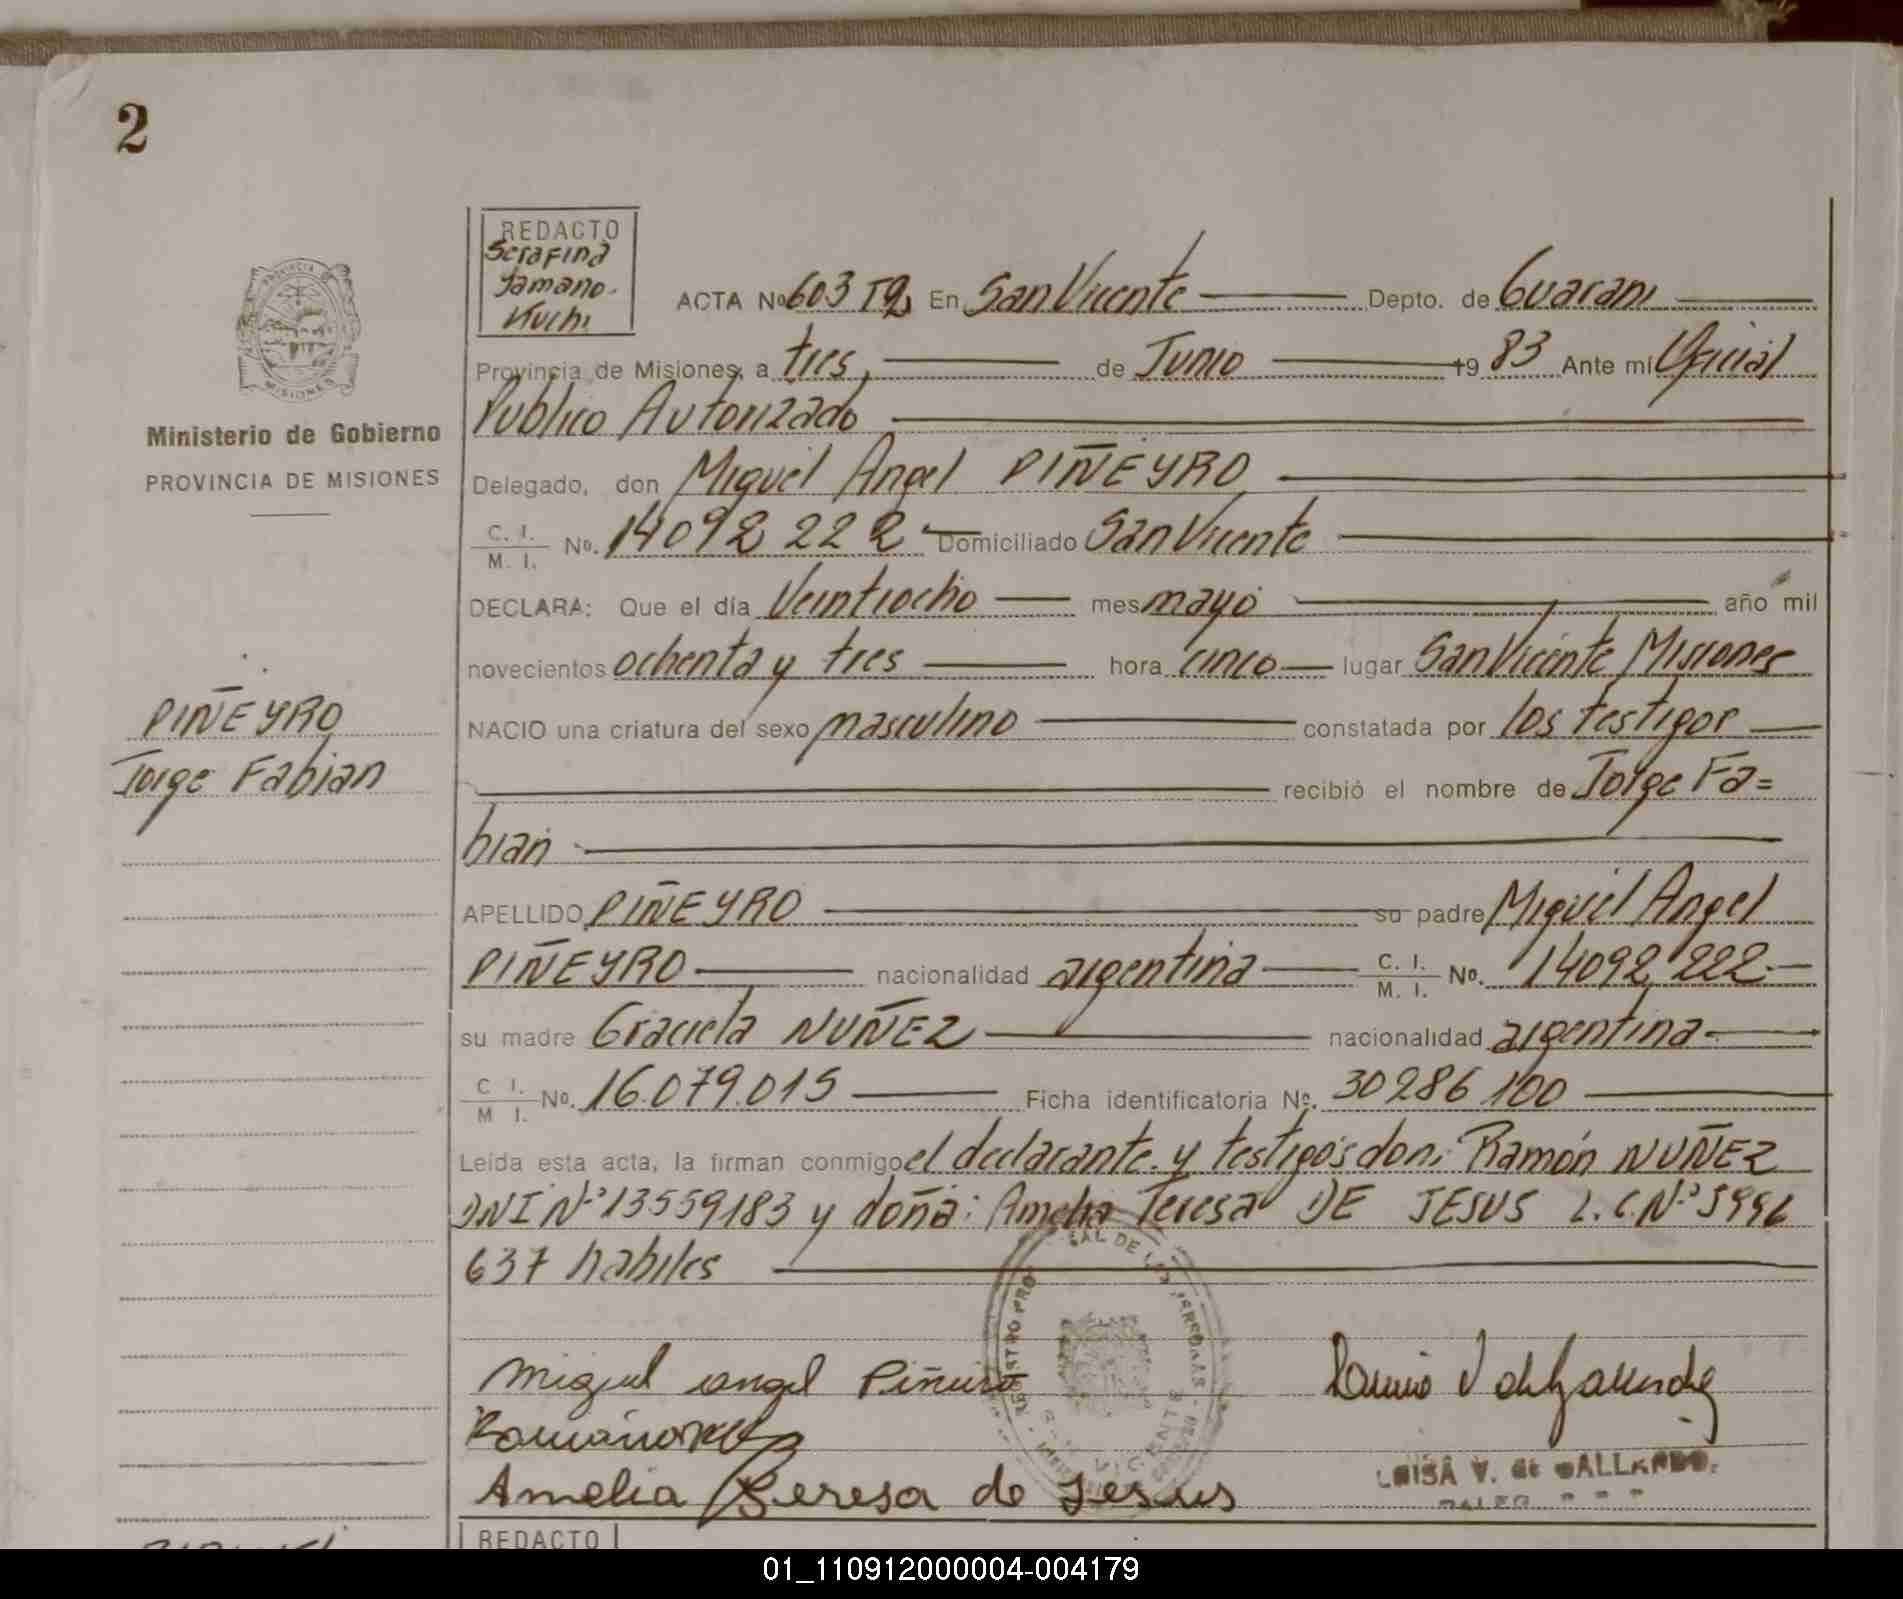 2
REDACTO
Serafina
Jamano.
Kuchi
ACTA Nº 603 T2 En San Vicente Depto. de Guarani
Provincia de Misiones, a tres, de Junio 1983 Ante mí Oficial
Publico Autorizado
Ministerio de Gobierno
PROVINCIA DE MISIONES
Delegado, don Miguel Angel PIÑEYRO
C. I.
M. I. No. 14092 222 Domiciliado San Vicente
DECLARA: Que el día Veintiocho mes mayo año mil
novecientos ochenta y tres hora cinco lugar San Vicente Misiones
PIÑEYRO
Jorge Fabian
NACIO una criatura del sexo masculino constatada por los testigos
recibió el nombre de Jorge Fa=
bian
APELLIDO PIÑEYRO su padre Miguel Angel
PIÑEYRO nacionalidad argentina C. I.
M. I. No. 14092 222
su madre Graciela NUÑEZ nacionalidad argentina
C I.
M I. No. 16.079.015 Ficha identificatoria Nº. 30286 100
Leída esta acta, la firman conmigo el declarante. y testigos don: Ramón NUÑEZ
DNI Nº 13559183 y doña: Amelia Teresa DE JESUS L.C.Nº 5996
637 habiles
REGISTRO PRO AL DE LAS PERSONAS
VICENTE
Miguel angel
Amelia Teresa de Jesus
LUISA V. de GALLARDO.
REDACTO
01_110912000004-004179